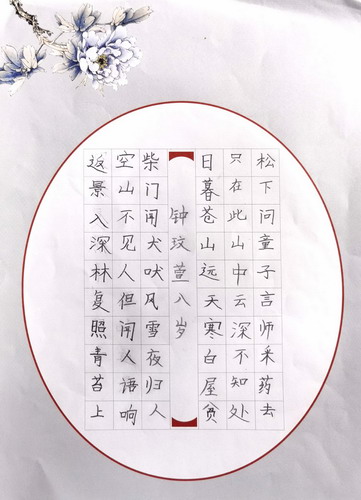 松下问童子言师采药去
只在此山中云深不知处
日暮苍山远天寒白屋贫
钟玟萱八岁
柴门闻犬吠风雪夜归人
空山不见人但闻人语响
返景入深林复照青苔上